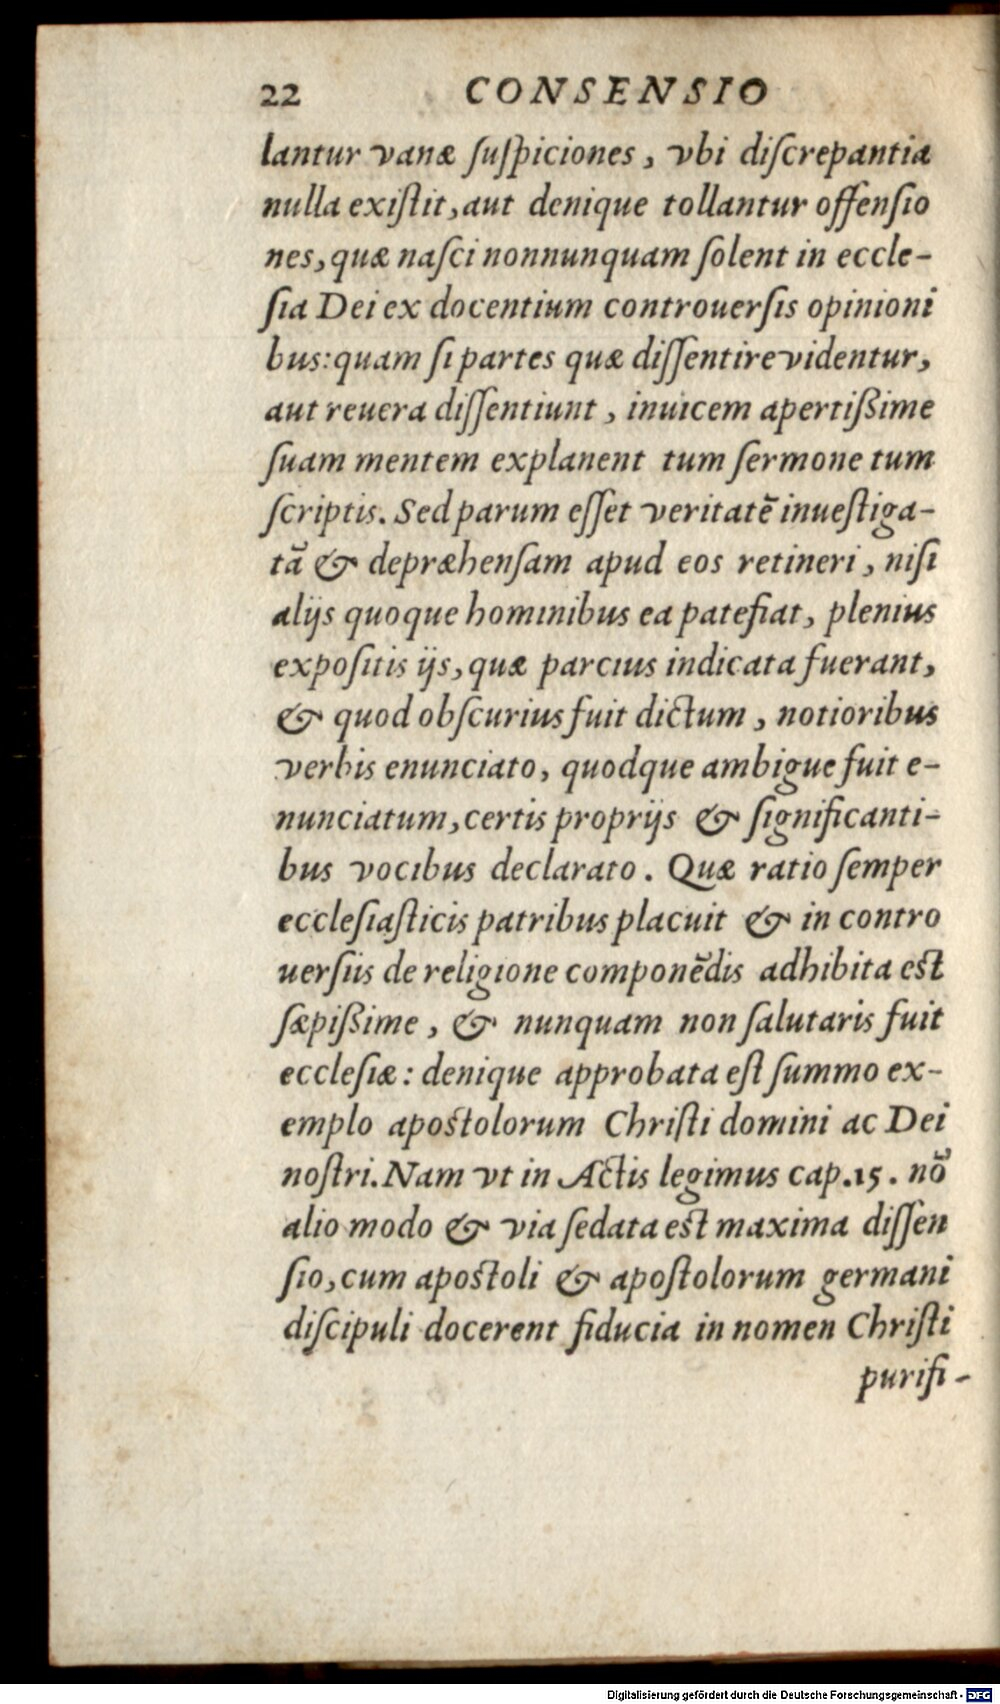 22 CONSENSIO
lantur vanæ ſuſpiciones, vbi diſcrepantia
nulla exiſtit, aut denique tollantur offenſio
nes, quæ naſci nonnunquam ſolent in eccle-
ſia Dei ex docentium controuerſis opinioni
bus: quam ſi partes quæ diſſentire videntur,
aut reuera diſſentiunt, inuicem apertißime
ſuam mentem explanent tum ſermone tum
ſcriptis. Sed parum eſſet veritatẽ inueſtiga-
tã & depræhenſam apud eos retineri, niſi
alijs quoque hominibus ea patefiat, plenius
expoſitis ijs, quæ parcius indicata fuerant,
& quod obſcurius fuit dictum, notioribus
verbis enunciato, quodque ambigue fuit e-
nunciatum, certis proprijs & ſignificanti-
bus vocibus declarato. Quæ ratio ſemper
eccleſiaſticis patribus placuit & in contro
uerſiis de religione componẽdis adhibita est
ſæpißime, & nunquam non ſalutaris fuit
eccleſiæ: denique approbata eſt ſummo ex-
emplo apostolorum Chriſti domini ac Dei
noſtri. Nam vt in Actis legimus cap. 15. nõ
alio modo & via ſedata est maxima diſſen
ſio, cum apostoli & apoſtolorum germani
diſcipuli docerent fiducia in nomen Chriſti
purifi-
Digitalisierung gefördert durch die Deutsche Forschungsgemeinschaft - DFG